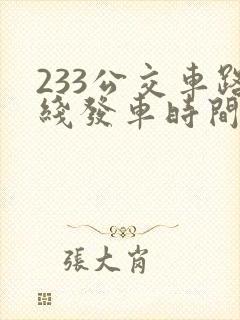 233公交車路
綫發車時間
張大肖